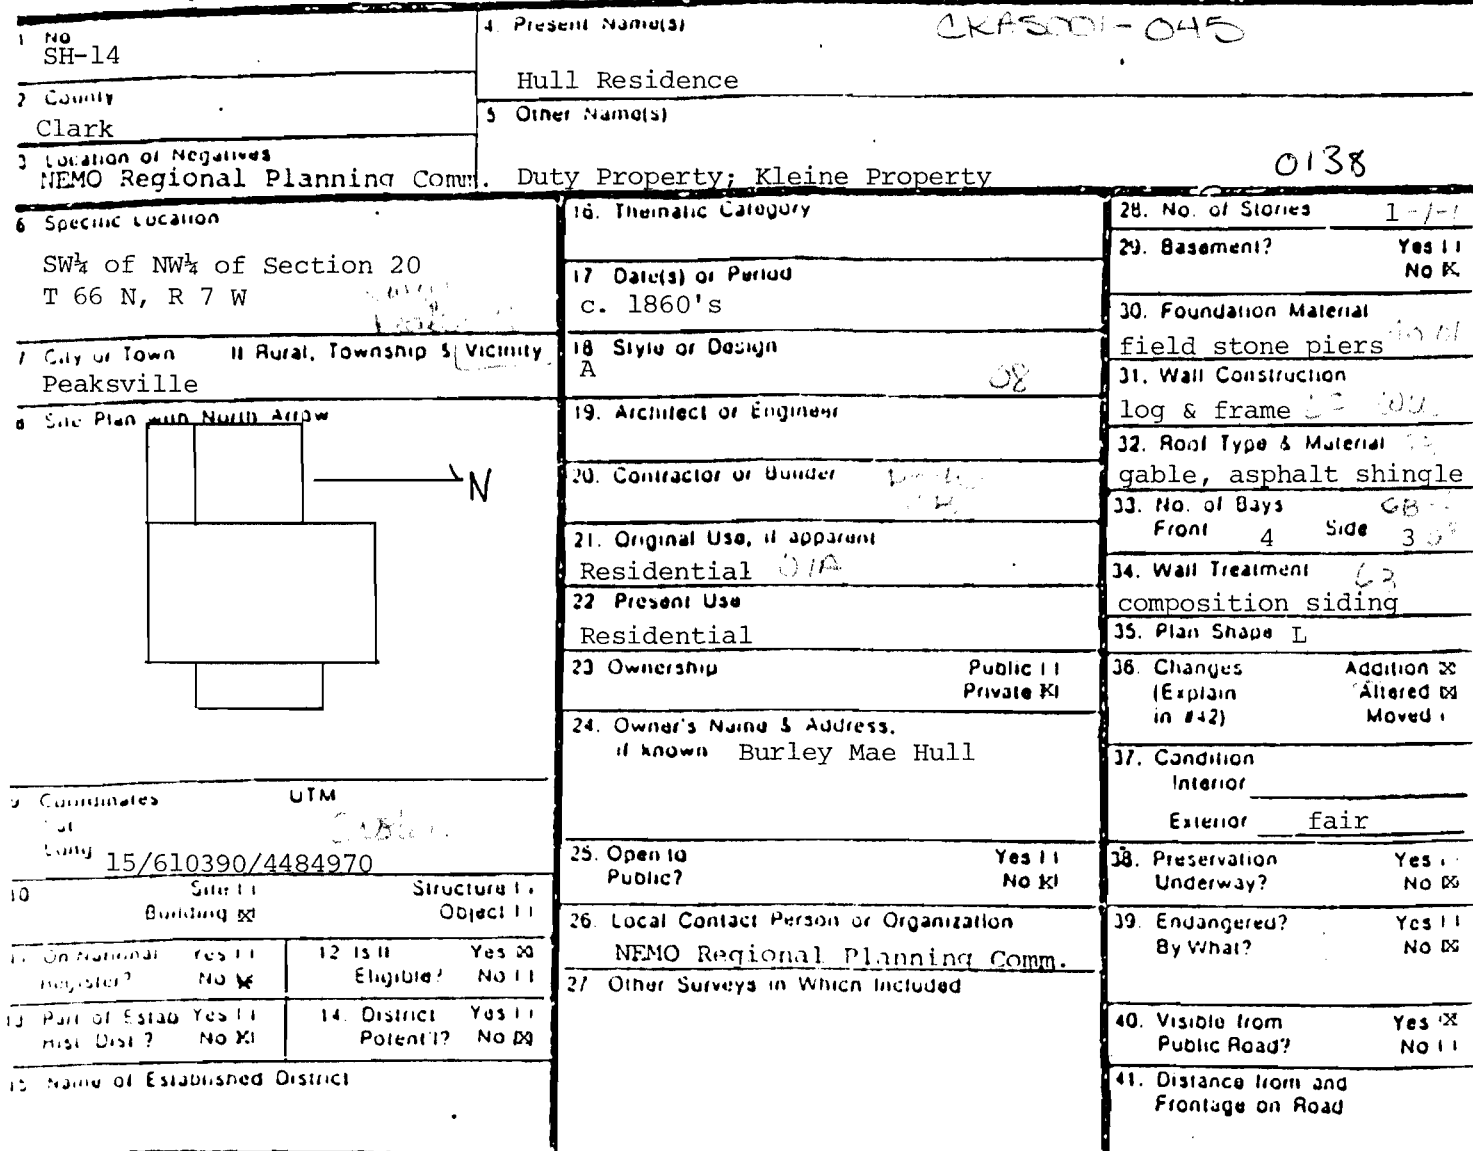 1 No
SH-14
4. Present Name(s)
CKAS001-045
Hull Residence
2 County
Clark
5 Other Name(s)
3 Location of Negatives
NEMO Regional Planning Comm.
Duty Property; Kleine Property
0138
6 Specific Location
SW¼ of NW¼ of Section 20
T 66 N, R 7 W
7 City or Town If Rural, Township & Vicinity
Peaksville
8 Site Plan with North Arrow
N
9 Coordinates UTM
Lat
Long
15/610390/4484970
10 Site [ ] Structure [ ]
Building [X] Object [ ]
11 On National Yes [ ]
Register? No [X]
12 Is It Yes [X]
Eligible? No [ ]
13 Part of Estab Yes [ ]
Hist. Dist.? No [X]
14. District Yes [ ]
Potent'l? No [X]
15 Name of Established District
16. Thematic Category
17 Date(s) or Period
c. 1860's
18 Style or Design
A
08
19. Architect or Engineer
20. Contractor or Builder
21. Original Use, if apparent
Residential 01A
22 Present Use
Residential
23 Ownership Public [ ]
Private [X]
24. Owner's Name & Address,
if known Burley Mae Hull
25. Open to Yes [ ]
Public? No [X]
26. Local Contact Person or Organization
NEMO Regional Planning Comm.
27 Other Surveys in Which Included
28. No. of Stories 1-1-1
29. Basement? Yes [ ]
No [X]
30. Foundation Material
field stone piers
31. Wall Construction
log & frame
32. Roof Type & Material
gable, asphalt shingle
33. No. of Bays GB
Front 4 Side 3
34. Wall Treatment 63
composition siding
35. Plan Shape L
36. Changes Addition [X]
(Explain Altered [X]
in #42) Moved [ ]
37. Condition
Interior
Exterior fair
38. Preservation Yes [ ]
Underway? No [X]
39. Endangered? Yes [ ]
By What? No [X]
40. Visible from Yes [X]
Public Road? No [ ]
41. Distance from and
Frontage on Road